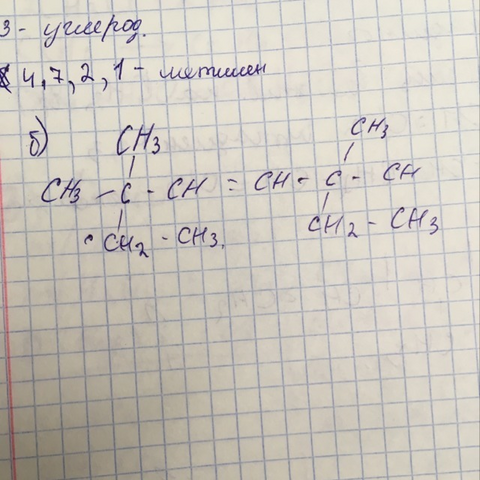 3 - углерод.
4, 7, 2, 1 - метилен
б)
CH3 CH3
CH3 - C - CH = CH - C - CH
CH2 - CH3. CH2 - CH3